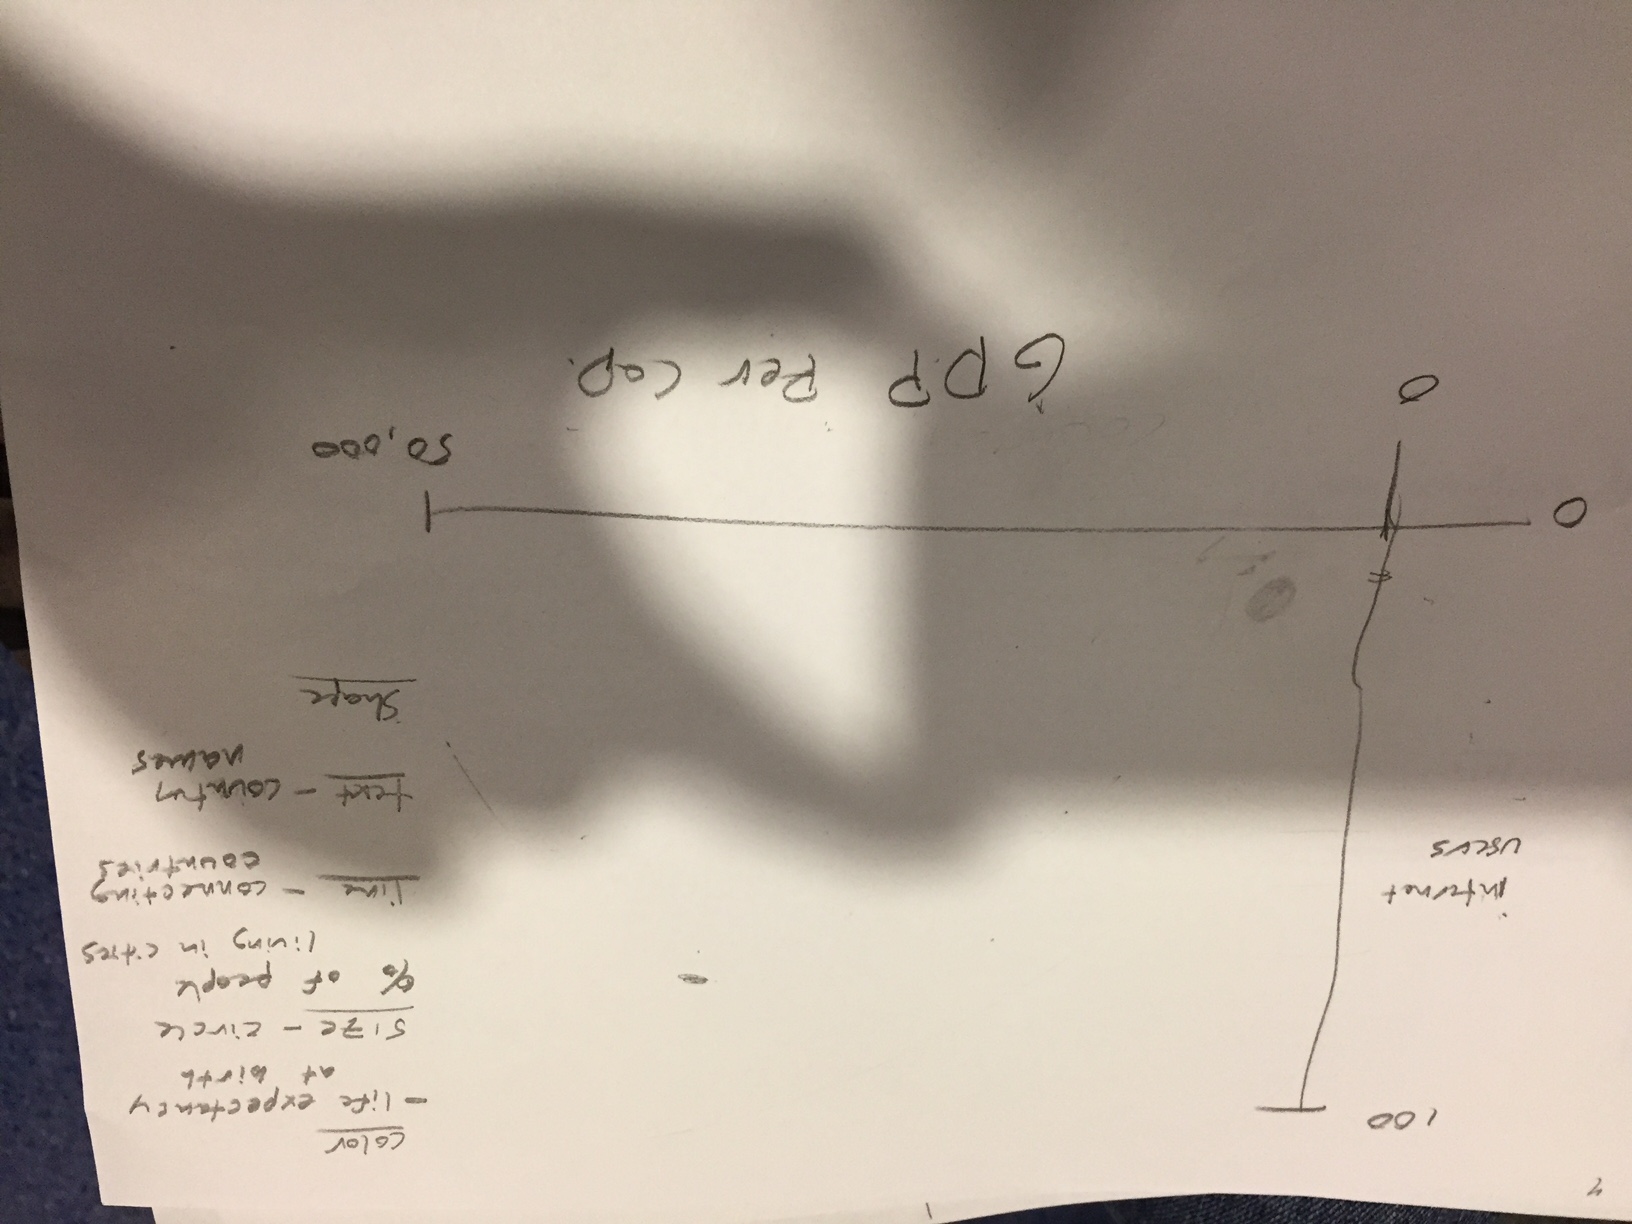 100
internet
users
0
0
50,000
GDP Per Cap.
color
- life expectancy
at birth
size - circle
% of people
living in cities
line - connecting
countries
text - country
names
Shape